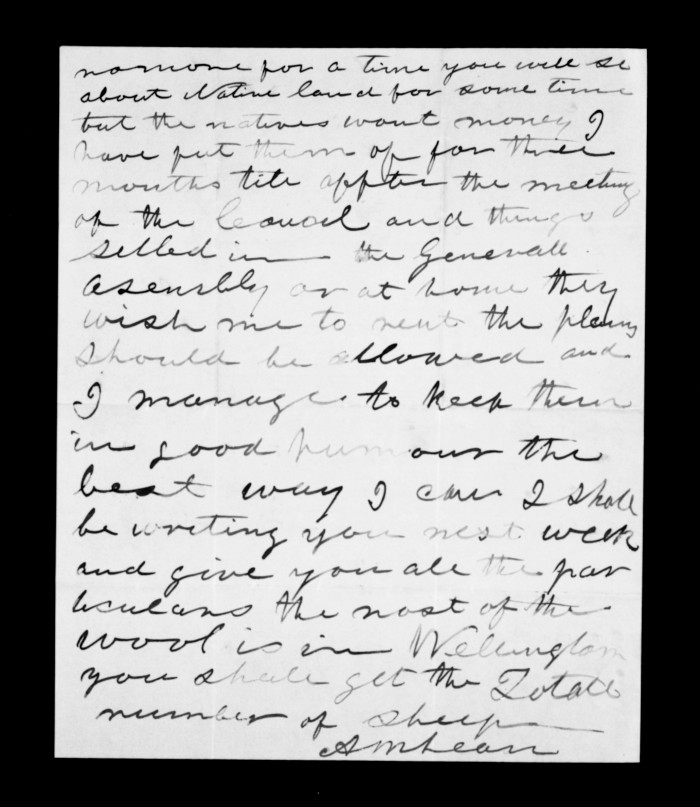 no more for a time you will se
about Native land for some time
but the natives want money I
have put them of for three
months tile affter the meeting
of the Councel and things
setled in the Generall
Asembly or at home they
wish me to rent the plains
should be allowed and
I manage to keep them
in good humour the
best way I can I shall
be writing you next week
and give you all the par
ticulars the most of the
wool is in Wellington
you shall get the Totall
number of sheep
A McLean